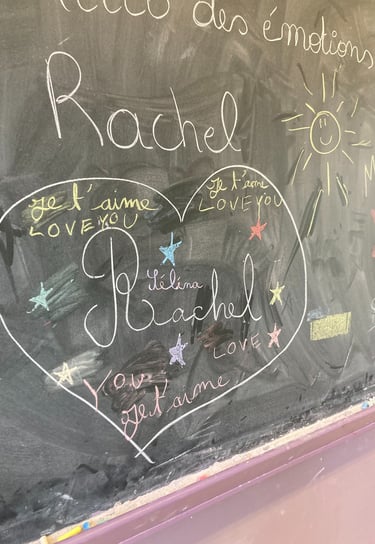 des émotions
Rachel
Je t'aime
LOVE YOU
Je t'aime
LOVE YOU
Rachel
LOVE
YOU
Je t'aime